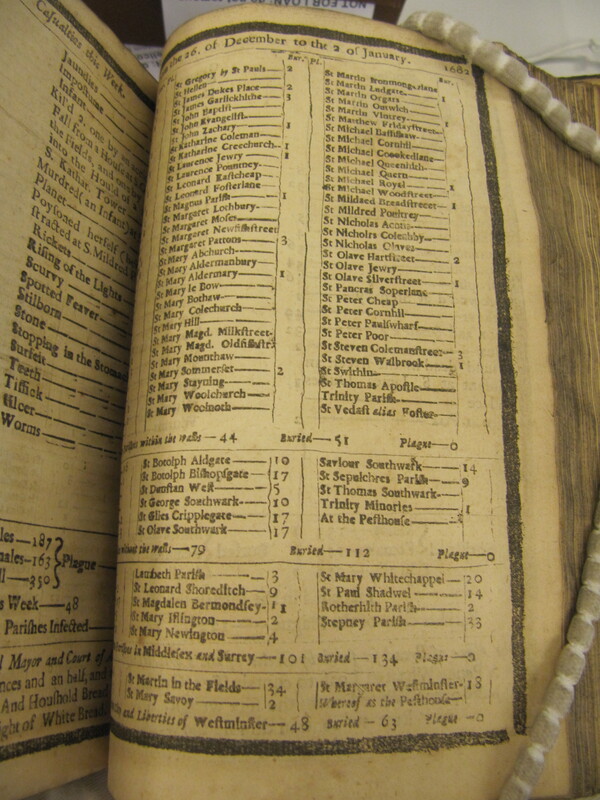 NOT FOR LOAN
Casualties this Week.
Jaundies
Impostume
Infants
Kill'd 2, one by
Fall from a House
the Field, and
Into the Hould of
S. Kathar. Tower
Murdred (an Infant)
Planet
Poysoned herself
stracted at S. Mildred
Rickets
Rising of the Lights
Scurvy
Spotted Feaver
Stilborn
Stone
Stopping in the Stomach
Surfeit
Teeth
Tissick
Ulcer
Worms
les—187
males—163 Plague
ll—350
s Week—48
Parishes Infected
Mayor and Court of
nces and an half, and
And Houshold Bread
ight of White Bread
the 26. of December to the 2 of January. 1682
Bur. Pl.
St Gregory by St Pauls—2
St Hellen
St James Dukes Place—2
St James Garlickhithe—3
St John Baptist
St John Evangelist
St John Zachary—1
St Katharine Coleman
St Katharine Creechurch—1
St Laurence Jewry—1
St Laurence Pountney
St Leonard Eastcheap
St Leonard Fosterlane
St Magnus Parish—1
St Margaret Lothbury
St Margaret Moses
St Margaret Newfishstreet
St Margaret Pattons—3
St Mary Abchurch
St Mary Aldermanbury
St Mary Aldermary—1
St Mary le Bow
St Mary Bothaw
St Mary Colechurch
St Mary Hill
St Mary Magd. Milkstreet
St Mary Magd. Oldfishstr.
St Mary Mounthaw
St Mary Sommerset—2
St Mary Stayning
St Mary Woolchurch
St Mary Woolnoth
Bur.
St Martin Ironmongerlane
St Martin Ludgate—1
St Martin Orgars
St Martin Outwich
St Martin Vintrey—1
St Matthew Fridaystreet
St Michael Bassishaw
St Michael Cornhil
St Michael Crookedlane
St Michael Queenhith
St Michael Quern
St Michael Royal—1
St Michael Woodstreet
St Mildred Breadstreet—1
St Mildred Poultrey
St Nicholas Acons
St Nicholas Coleabby
St Nicholas Olaves
St Olave Hartstreet—2
St Olave Jewry
St Olave Silverstreet—1
St Pancras Soperlane
St Peter Cheap
St Peter Cornhil
St Peter Paulswharf
St Peter Poor
St Steven Colemanstreet—3
St Steven Walbrook—1
St Swithin
St Thomas Apostle
Trinity Parish
St Vedast alias Foster
within the Walls—44 Buried—51 Plague—0
St Botolph Aldgate—10
St Botolph Bishopsgate—17
St Dunstan West—5
St George Southwark—10
St Giles Cripplegate—17
St Olave Southwark—17
Saviour Southwark—14
St Sepulchres Parish—9
St Thomas Southwark
Trinity Minories—1
At the Pesthouse
without the Walls—79 Buried—112 Plague—0
Lambeth Parish—3
St Leonard Shoreditch—9
St Magdalen Bermondsey—11
St Mary Islington—2
St Mary Newington—4
St Mary Whitechappel—20
St Paul Shadwel—14
Rotherhith Parish—2
Stepney Parish—33
in Middlesex and Surrey—101 Buried—134 Plague—0
St Martin in the Fields—34
St Mary Savoy—2
St Margaret Westminster—18
Whereof at the Pesthouse
and Liberties of Westminster—48 Buried—63 Plague—0